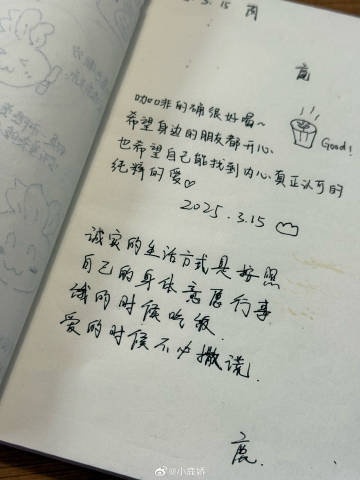 3.15 周
鹿
咖啡的确很好喝~
希望身边的朋友都开心
也希望自己能找到内心真正认可的
纯粹的爱♡
Good!
2025.3.15
诚实的生活方式是按照
自己的身体意愿行事
饿的时候吃饭
爱的时候不必撒谎.
鹿.
@小鹿娇